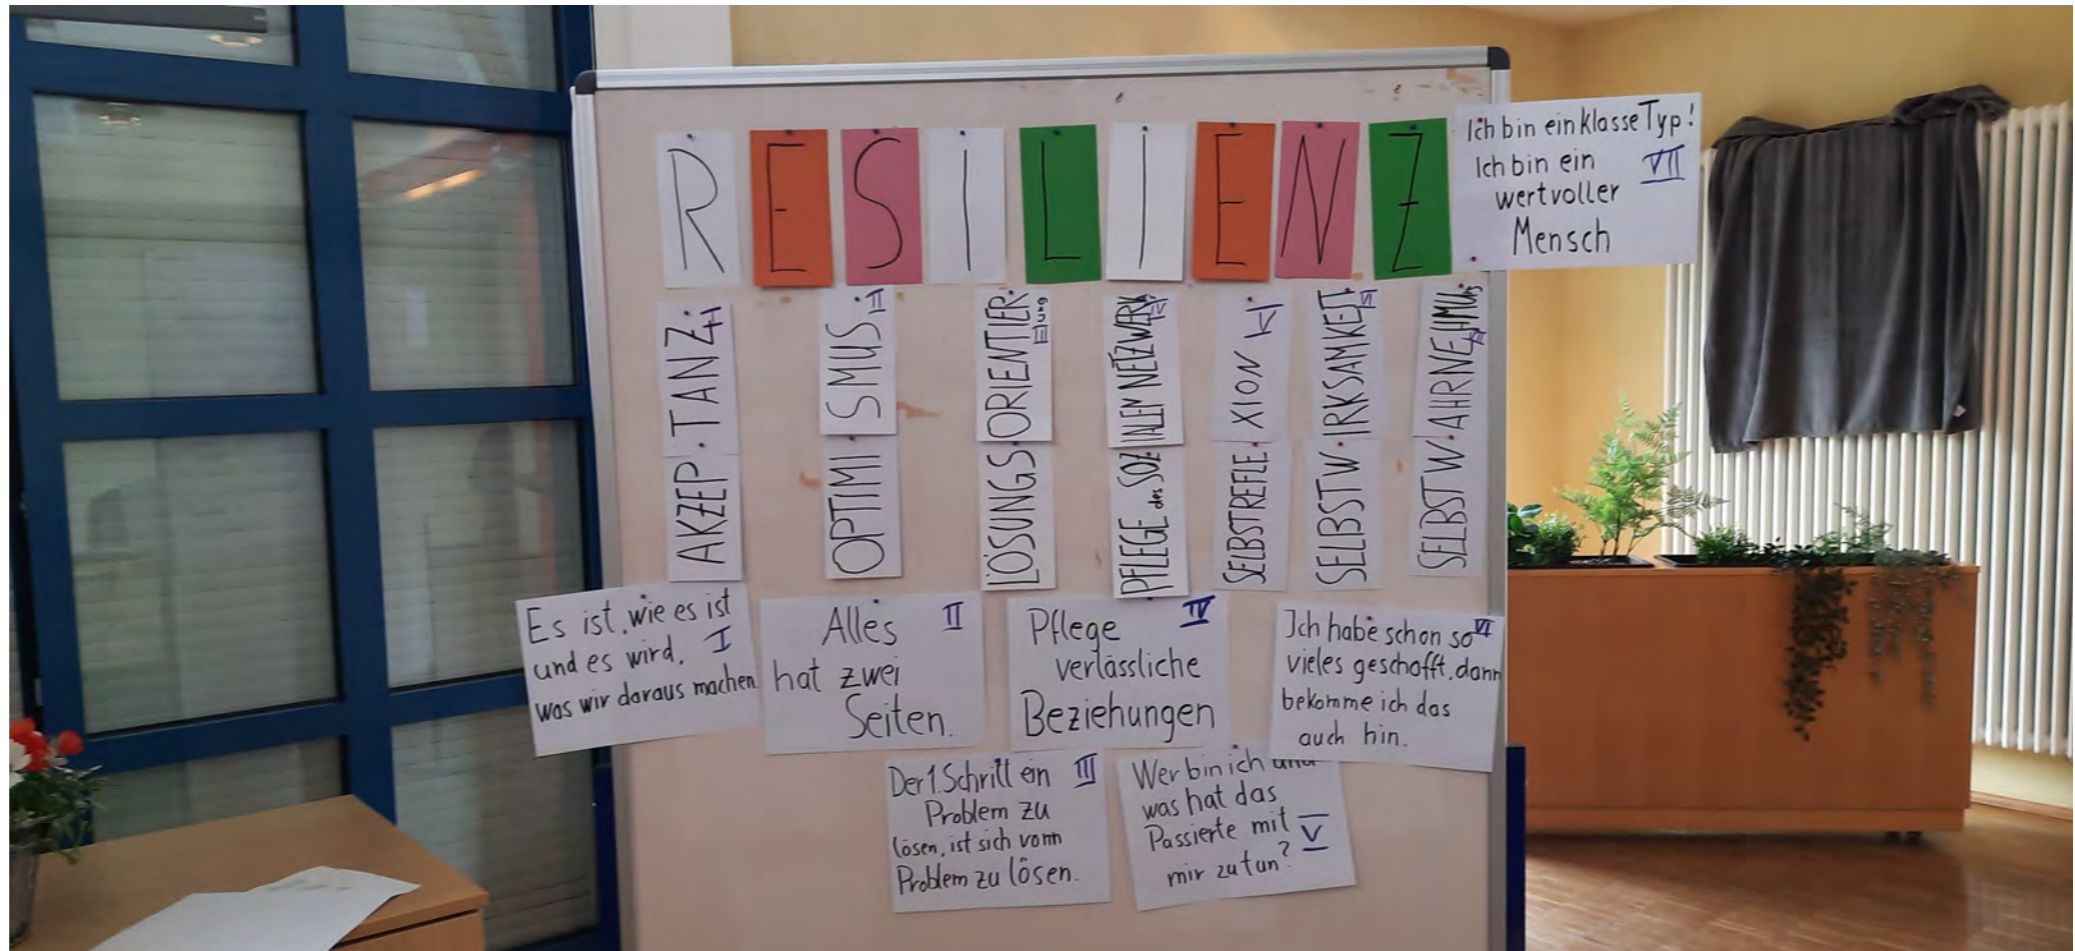 RESILIENZ
Ich bin ein klasse Typ!
Ich bin ein VII
wertvoller
Mensch
AKZEPTANZ I
OPTIMISMUS II
LÖSUNGSORIENTIERung III
PFLEGE des SOZIALEN NETZWERKS IV
SELBSTREFLEXION V
SELBSTWIRKSAMKEIT VI
SELBSTWAHRNEHMUNG VII
Es ist, wie es ist
und es wird, I
was wir daraus machen
Alles II
hat zwei
Seiten.
Pflege IV
verlässliche
Beziehungen
Ich habe schon so VI
vieles geschafft, dann
bekomme ich das
auch hin.
Der 1. Schritt ein III
Problem zu
lösen, ist sich vom
Problem zu lösen.
Wer bin ich und
was hat das
Passierte mit V
mir zu tun?